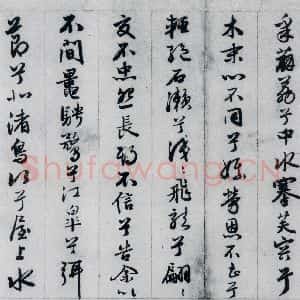 采薜荔兮中水搴芙容兮
木末心不同兮媒勞恩不甚兮
輕絕石瀨兮淺淺飛龍兮翩翩
交不忠怨長期不信兮告余以
不閒鼂騁騖兮江皋夕弭
節兮北渚鳥次兮屋上水
Shufawang.CN